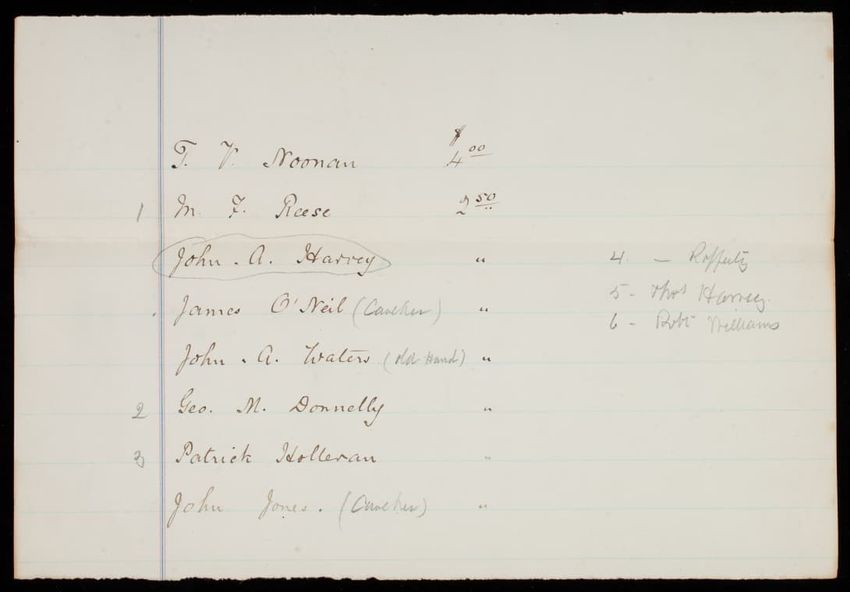 T. V. Noonan $4 00
1 M. F. Reese 2 50
John . A. Harvey "
James O'Neil (Caulker) "
John . A. Waters (old hand) "
2 Geo. M. Donnelly "
3 Patrick Holleran "
John Jones. (Caulker) "
4. - Rafferty
5 - Thos Harvey.
6 - Robt Williams